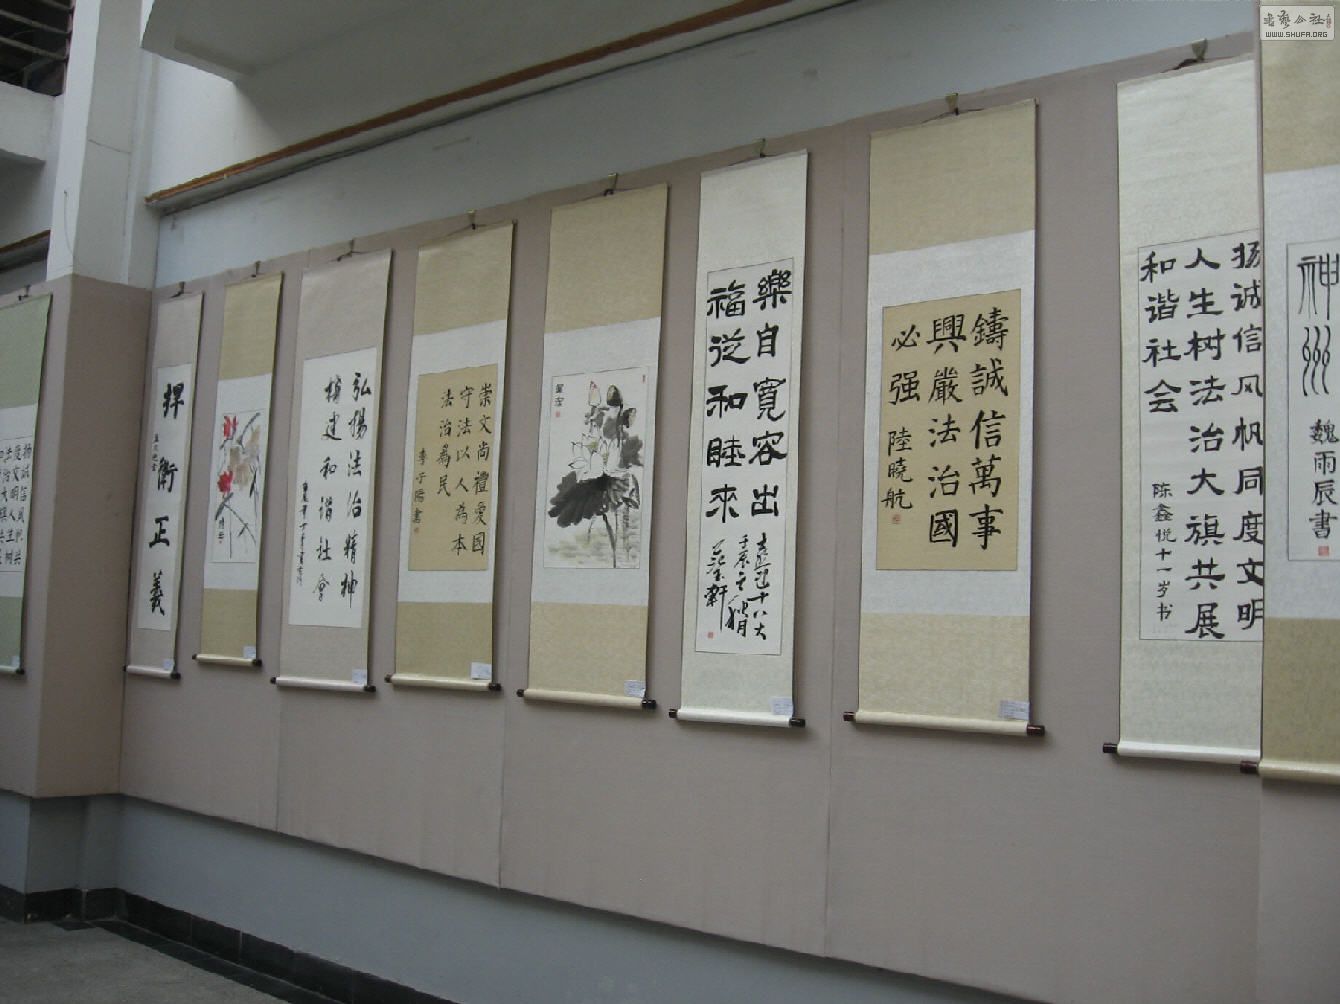 書藝公社
WWW.SHUFA.ORG
神州
魏雨辰書
扬诚信风帆同度文明
人生树法治大旗共展
和谐社会
陈鑫悦十一岁书
鑄誠信萬事
興嚴法治國
必强
陸曉航
樂自寬容出
福從和睦來
喜迎十八大
壬辰之秋月
崇文尚禮愛國
守法以人為本
法治為民
李子陽書
弘揚法治精神
構建和諧社會
捍衛正義